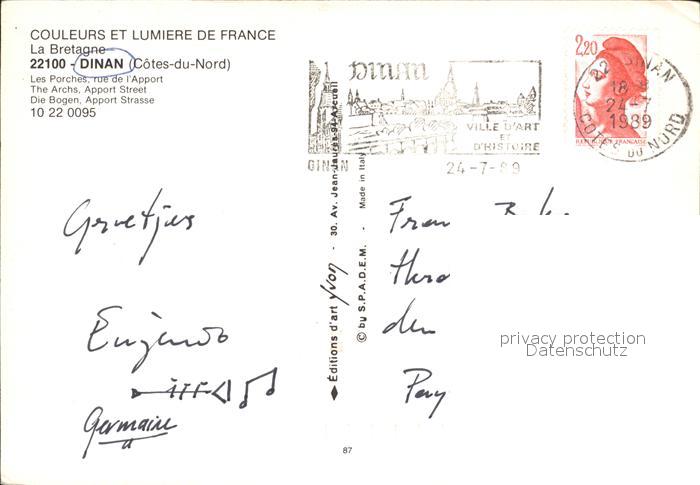 COULEURS ET LUMIERE DE FRANCE
La Bretagne
22100 - DINAN (Côtes-du-Nord)
Les Porches, rue de l'Apport
The Archs, Apport Street
Die Bogen, Apport Strasse
10 22 0095
DINAN
VILLE D'ART
ET
D'HISTOIRE
DINAN
24-7-89
2,20
REPUBLIQUE FRANCAISE
22 DINAN
18
24-7
1989
COTES DU NORD
Groetjes
Eugène
Germaine
Editions d'art Yvon - 30, Av. Jean-Jaurès-94-Arcueil
© by S.P.A.D.E.M. - Made in Italy
den
privacy protection
Datenschutz
87